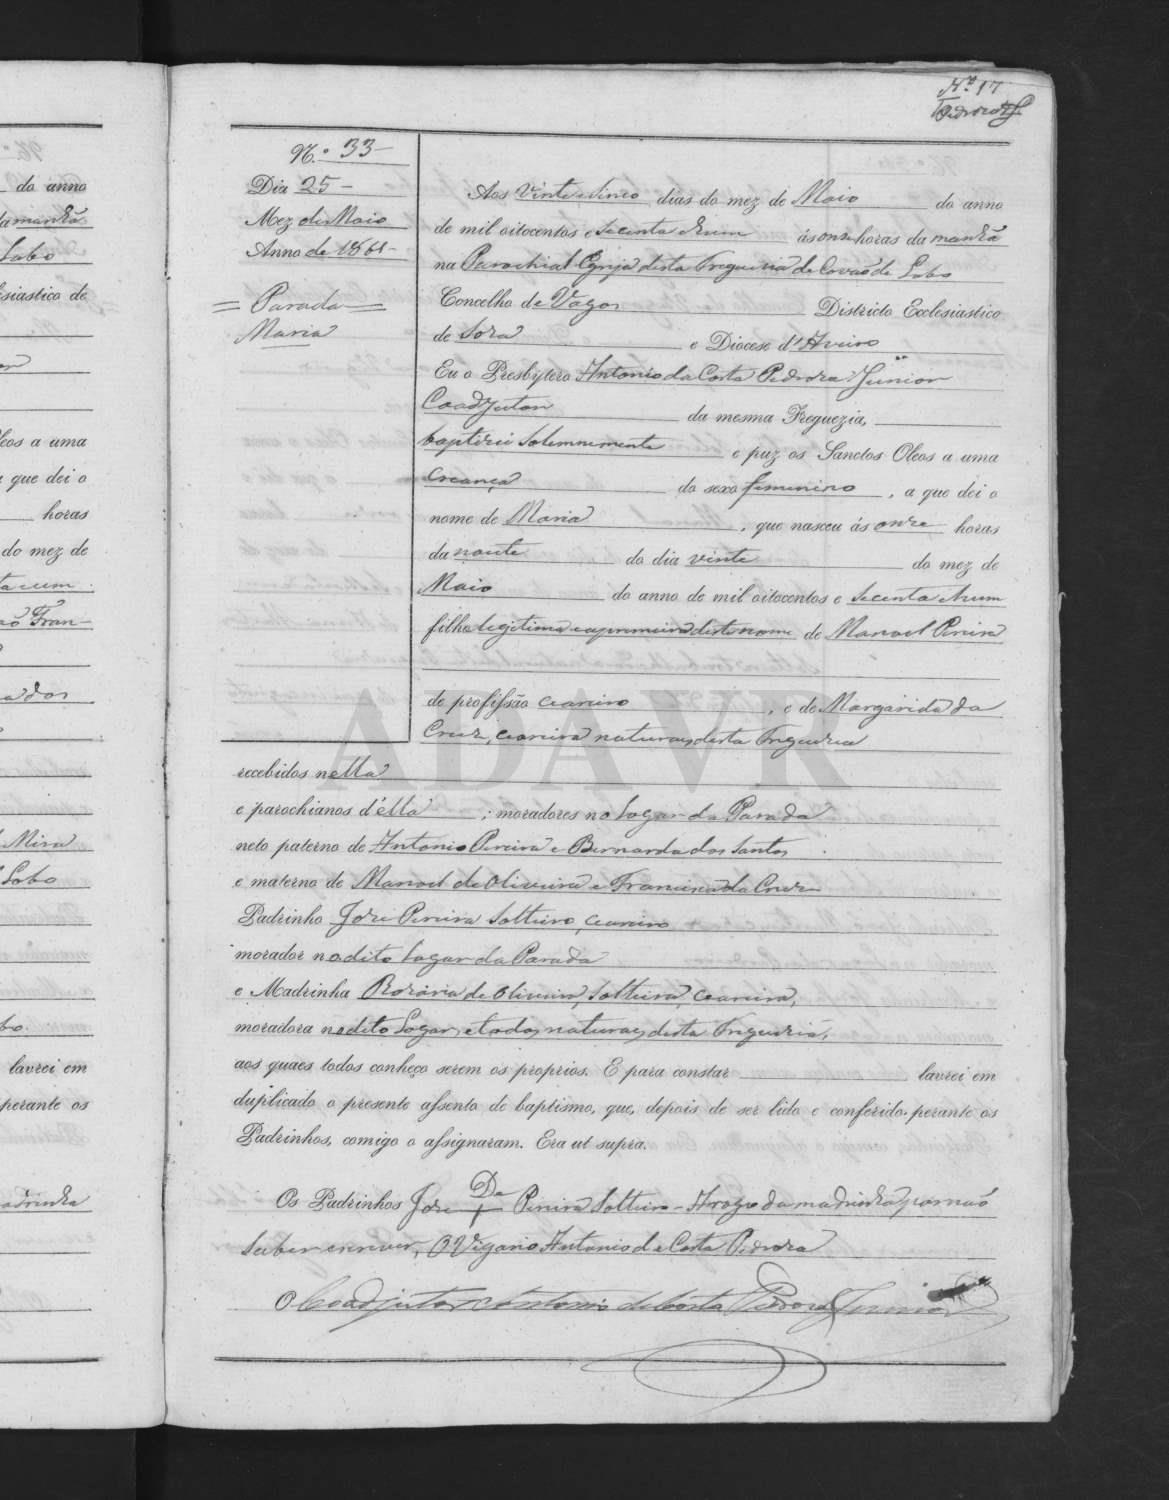 Nº 17
Pedroza Jr
do anno
da manhã
Lobo
esiastico de
leos a uma
a que dei o
horas
do mez de
ta e um
ão Fran-
ados
Mira
Lobo
bo.
lavrei em
perante os
adrinha
N.º 33-
Dia 25-
Mez de Maio
Anno de 1861-
=Parada=
Maria
Aos Vinte e Sinco dias do mez de Maio do anno
de mil oitocentos e Secenta e hum ás onze horas da manhã
na Parochial Egreja desta Freguezia de Covão de Lobo
Concelho de Vagos Districto Ecclesiastico
de Sora e Diocese d'Aveiro
Eu o Presbytero Antonio da Costa Pedroza Junior
Coadjutor da mesma Freguezia,
baptizei Solemnemente e puz os Sanctos Oleos a uma
creança do sexo femenino, a que dei o
nome de Maria, que nasceu ás onze horas
da noute do dia vinte do mez de
Maio do anno de mil oitocentos e Secenta e hum
filha legitima e a primeira deste nome de Manoel Pereira
de profissão ceareiro, e de Margarida da
Cruz, ceareira naturaes desta Freguezia
recebidos nella
e parochianos d'élla; moradores no Logar da Parada
neto paterno de Antonio Pereira e Bernarda dos Santos
e materno de Manoel de Oliveira e Francisca da Cruz
Padrinho José Pereira Solteiro, ceareiro
morador no dito Logar da Parada
e Madrinha Rozaria de Oliveira, Solteira, Ceareira,
moradora no dito Logar, e todos naturaes desta Freguezia,
aos quaes todos conheço serem os proprios. E para constar lavrei em
duplicado o presente assento de baptismo, que, depois de ser lido e conferido perante os
Padrinhos, comigo o assignaram. Era ut supra.
Os Padrinhos José De + Pereira Solteiro - A rogo da madrinha por não
saber escrever, O Vigario Antonio da Costa Pedroza
O Coadjutor Antonio da Costa Pedroza Junior
ADAVR